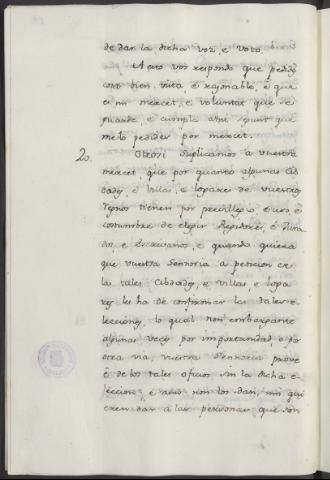 de dar la dicha voz, e voto.
A esto vos respondo que pedides
cosa bien vista e rasonable, e que
es mi merçet, e voluntat que se
guarde, e cumpla asi segunt que
me lo pedides por merçet.
20. Otrosi suplicamos a vuestra
merçet, que por quanto algunas Cib
dades, e Villas, e logares de vuestros
regnos tienen por previllegio, e uso, e
costumbre de elegir Regidores, e Jura
dos, e Escrivanos, e quando quiera
que vuestra Señoria a peticion de
las tales Cibdades, e Villas, e loga
res les ha de confirmar las tales e
lecciones, lo qual non embargante
algunas veces por importunidad, o por
otra via vuestra Señoria provee
e de los tales oficios sin la dicha e
leccion, e aun non los dan, nin qui
eren dar a las personas que son